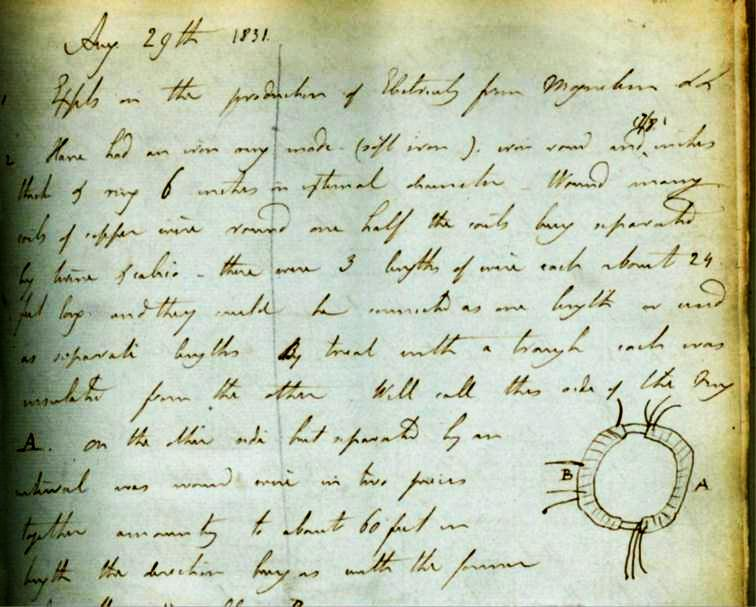 Aug 29th 1831.
1 Expts on the production of Electricity from Magnetism &c &c
2 Have had an iron ring made (soft iron), iron round and 7/8 inches
thick & ring 6 inches in external diameter. Wound many
coils of copper wire round one half the coils being separated
by twine & calico - there were 3 lengths of wire each about 24
feet long and they could be connected as one length or used
as separate lengths. By trial with a trough each was
insulated from the other. Will call this side of the ring
A. on the other side but separated by an
interval was wound wire in two pieces
together amounting to about 60 feet in
length the direction being as with the former
B
A